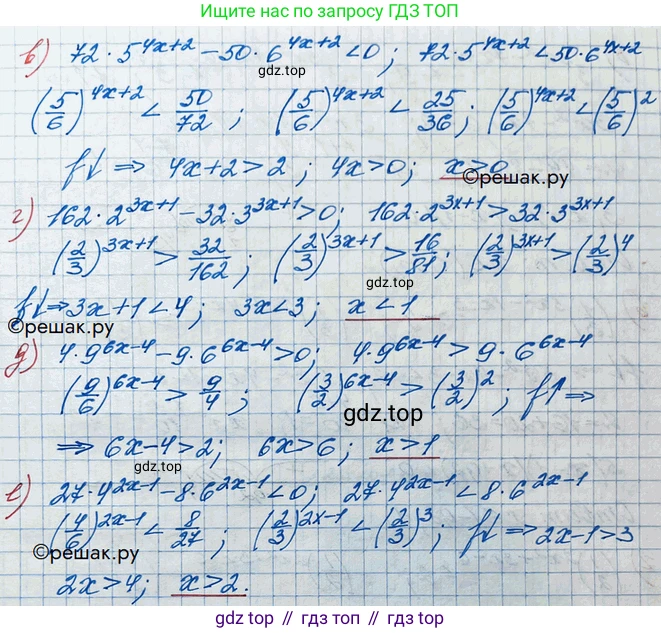 Ищите нас по запросу ГДЗ ТОП
в) 72·5^(4x+2) − 50·6^(4x+2) < 0; 72·5^(4x+2) < 50·6^(4x+2)
gdz.top
(5/6)^(4x+2) < 50/72; (5/6)^(4x+2) < 25/36; (5/6)^(4x+2) < (5/6)^2
f↓ ⇒ 4x+2 > 2; 4x > 0; x > 0
©решак.ру
г) 162·2^(3x+1) − 32·3^(3x+1) > 0; 162·2^(3x+1) > 32·3^(3x+1)
(2/3)^(3x+1) > 32/162; (2/3)^(3x+1) > 16/81; (2/3)^(3x+1) > (2/3)^4
gdz.top
f↓ ⇒ 3x+1 < 4; 3x < 3; x < 1
©решак.ру
д) 4·9^(6x−4) − 9·6^(6x−4) > 0; 4·9^(6x−4) > 9·6^(6x−4)
(9/6)^(6x−4) > 9/4; (3/2)^(6x−4) > (3/2)^2; f↑ ⇒
gdz.top
⇒ 6x−4 > 2; 6x > 6; x > 1
gdz.top
е) 27·4^(2x−1) − 8·6^(2x−1) < 0; 27·4^(2x−1) < 8·6^(2x−1)
(4/6)^(2x−1) < 8/27; (2/3)^(2x−1) < (2/3)^3; f↓ ⇒ 2x−1 > 3
©решак.ру
gdz.top
2x > 4; x > 2.
gdz.top // гдз.топ // гдз.top